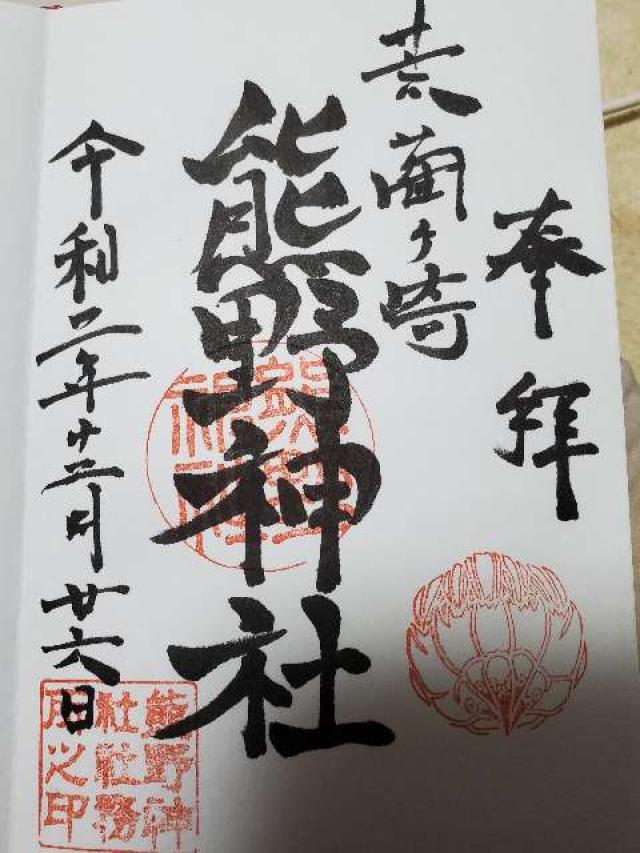 奉拝
荒藺ヶ崎
熊野神社
令和二年十二月廿六日
熊野神
社社務
所之印